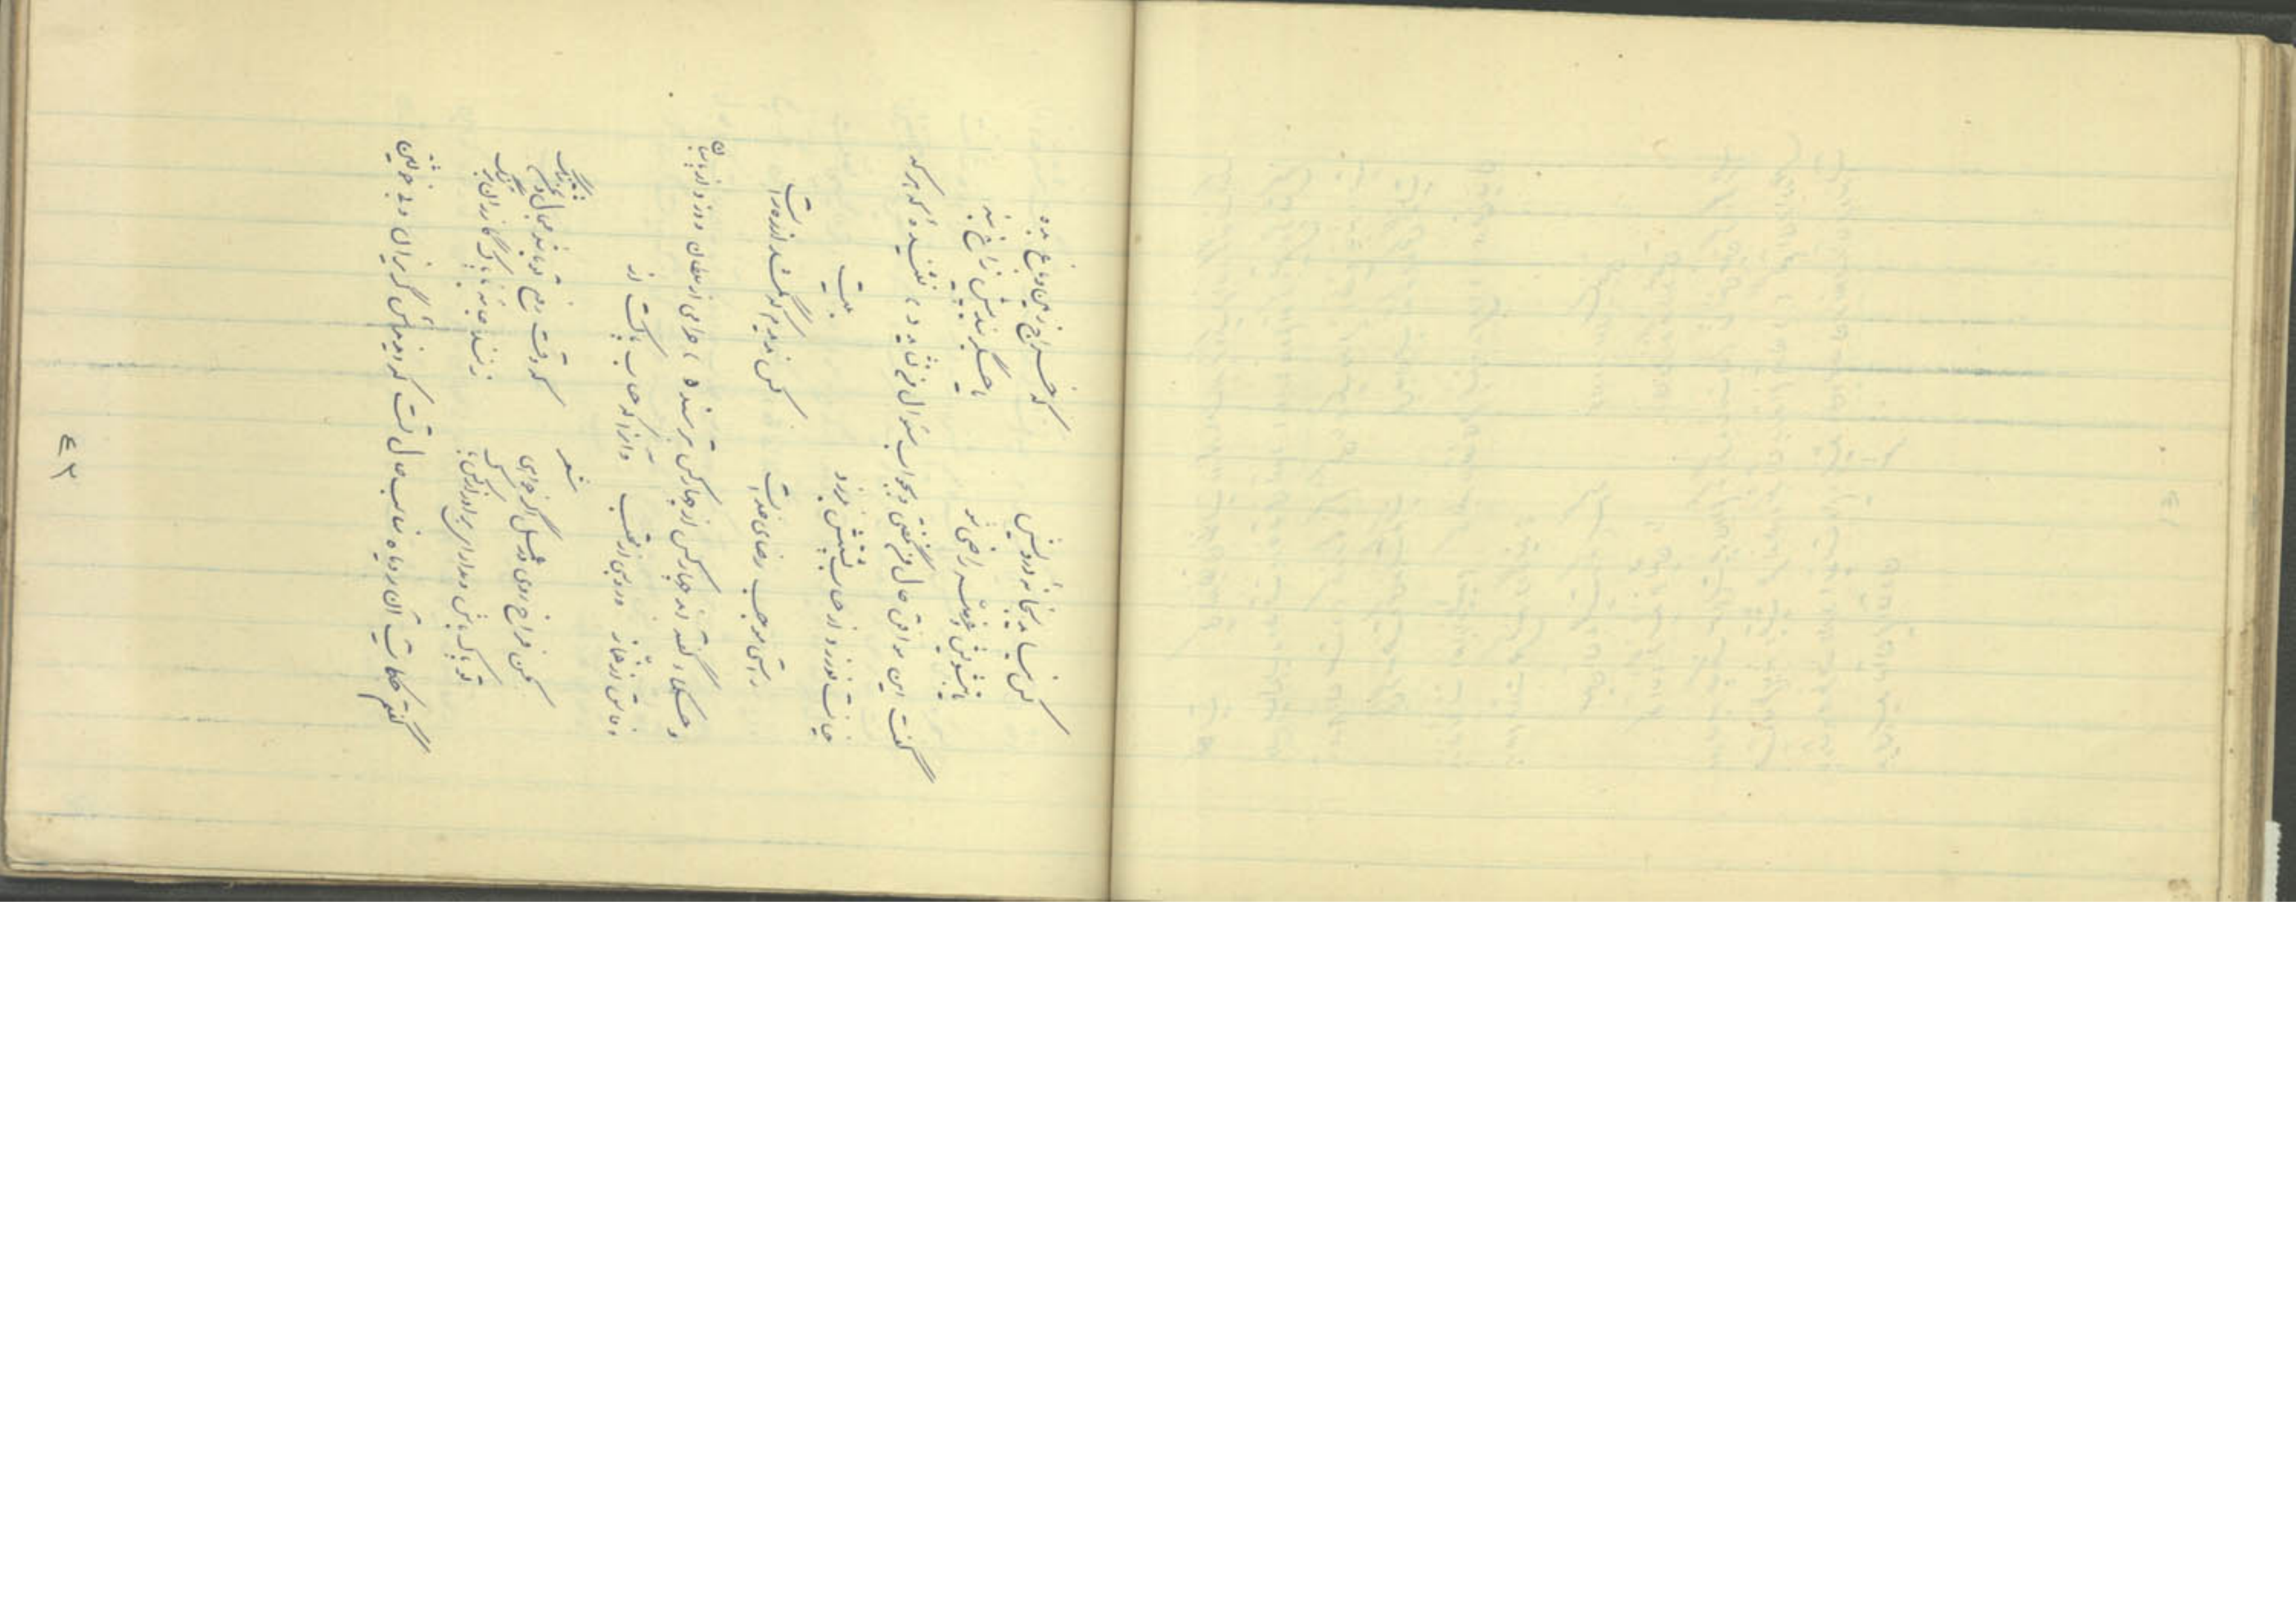 کس نیاید بخانهٔ درویش که خراج زمین و باغ بده
یا بتشویش و غصه راضی شو یا جگربند پیش زاغ بنه
گفت این موافق حال من نگفتی و جواب سؤال من نشنیدهٔ که هر که
خیانت نورزد از حساب پشتش نلرزد بیت
راستی موجب رضای خداست کس ندیدم که گم شد از ره راست
و حکما گفته اند چهار کس از چهار کس حرامی از سلطان و دزد از پاسبان
و فاسق از غماز و روسبی از محتسب و آنرا که حساب پاکست از
شعر
مکن فراخ روی در عمل اگر خواهی که وقت رفع تو باشد مجال دشمن تنگ
تو پاک باش و مدار ای برادر از کس باک زنند جامه ناپاک گازران بر سنگ
گفتم حکایت آن روباه مناسب حال تست که دیدندش گریزان و بی خویشتن
٤٣